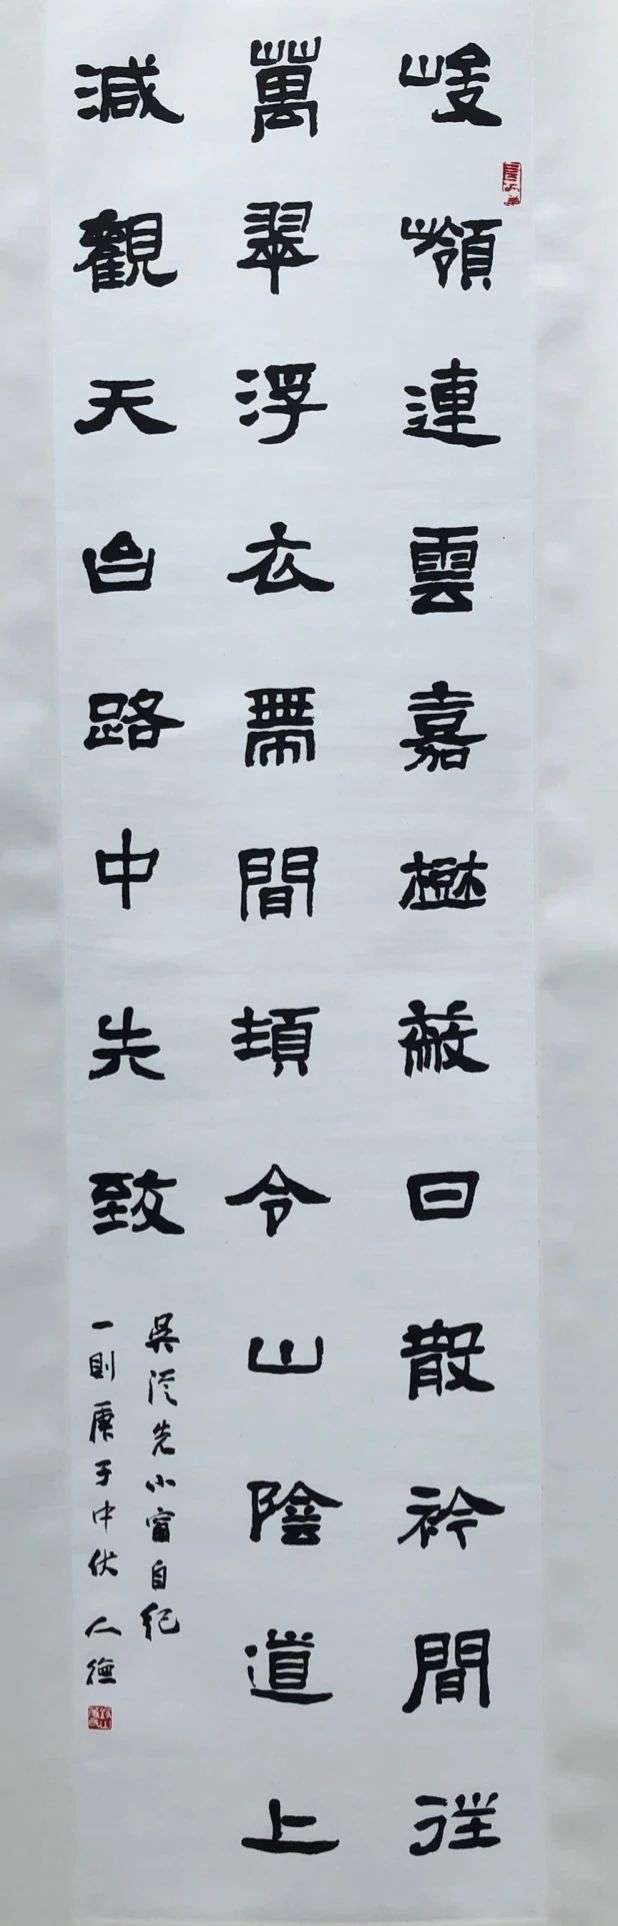 峻嶺連雲嘉蔽日散衿間往
萬翠浮衣帶間頓令山陰道上
減觀天台路中失致
吳從先小窗自紀
一則庚子中伏 人德